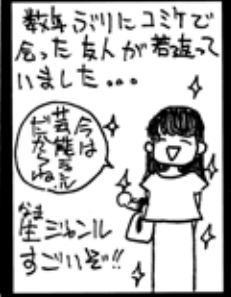 数年ぶりにコミケで
会った友人が若返って
いました...
今は
芸能ジャンル
だからね
なま
生ジャンル
すごいぞ!!